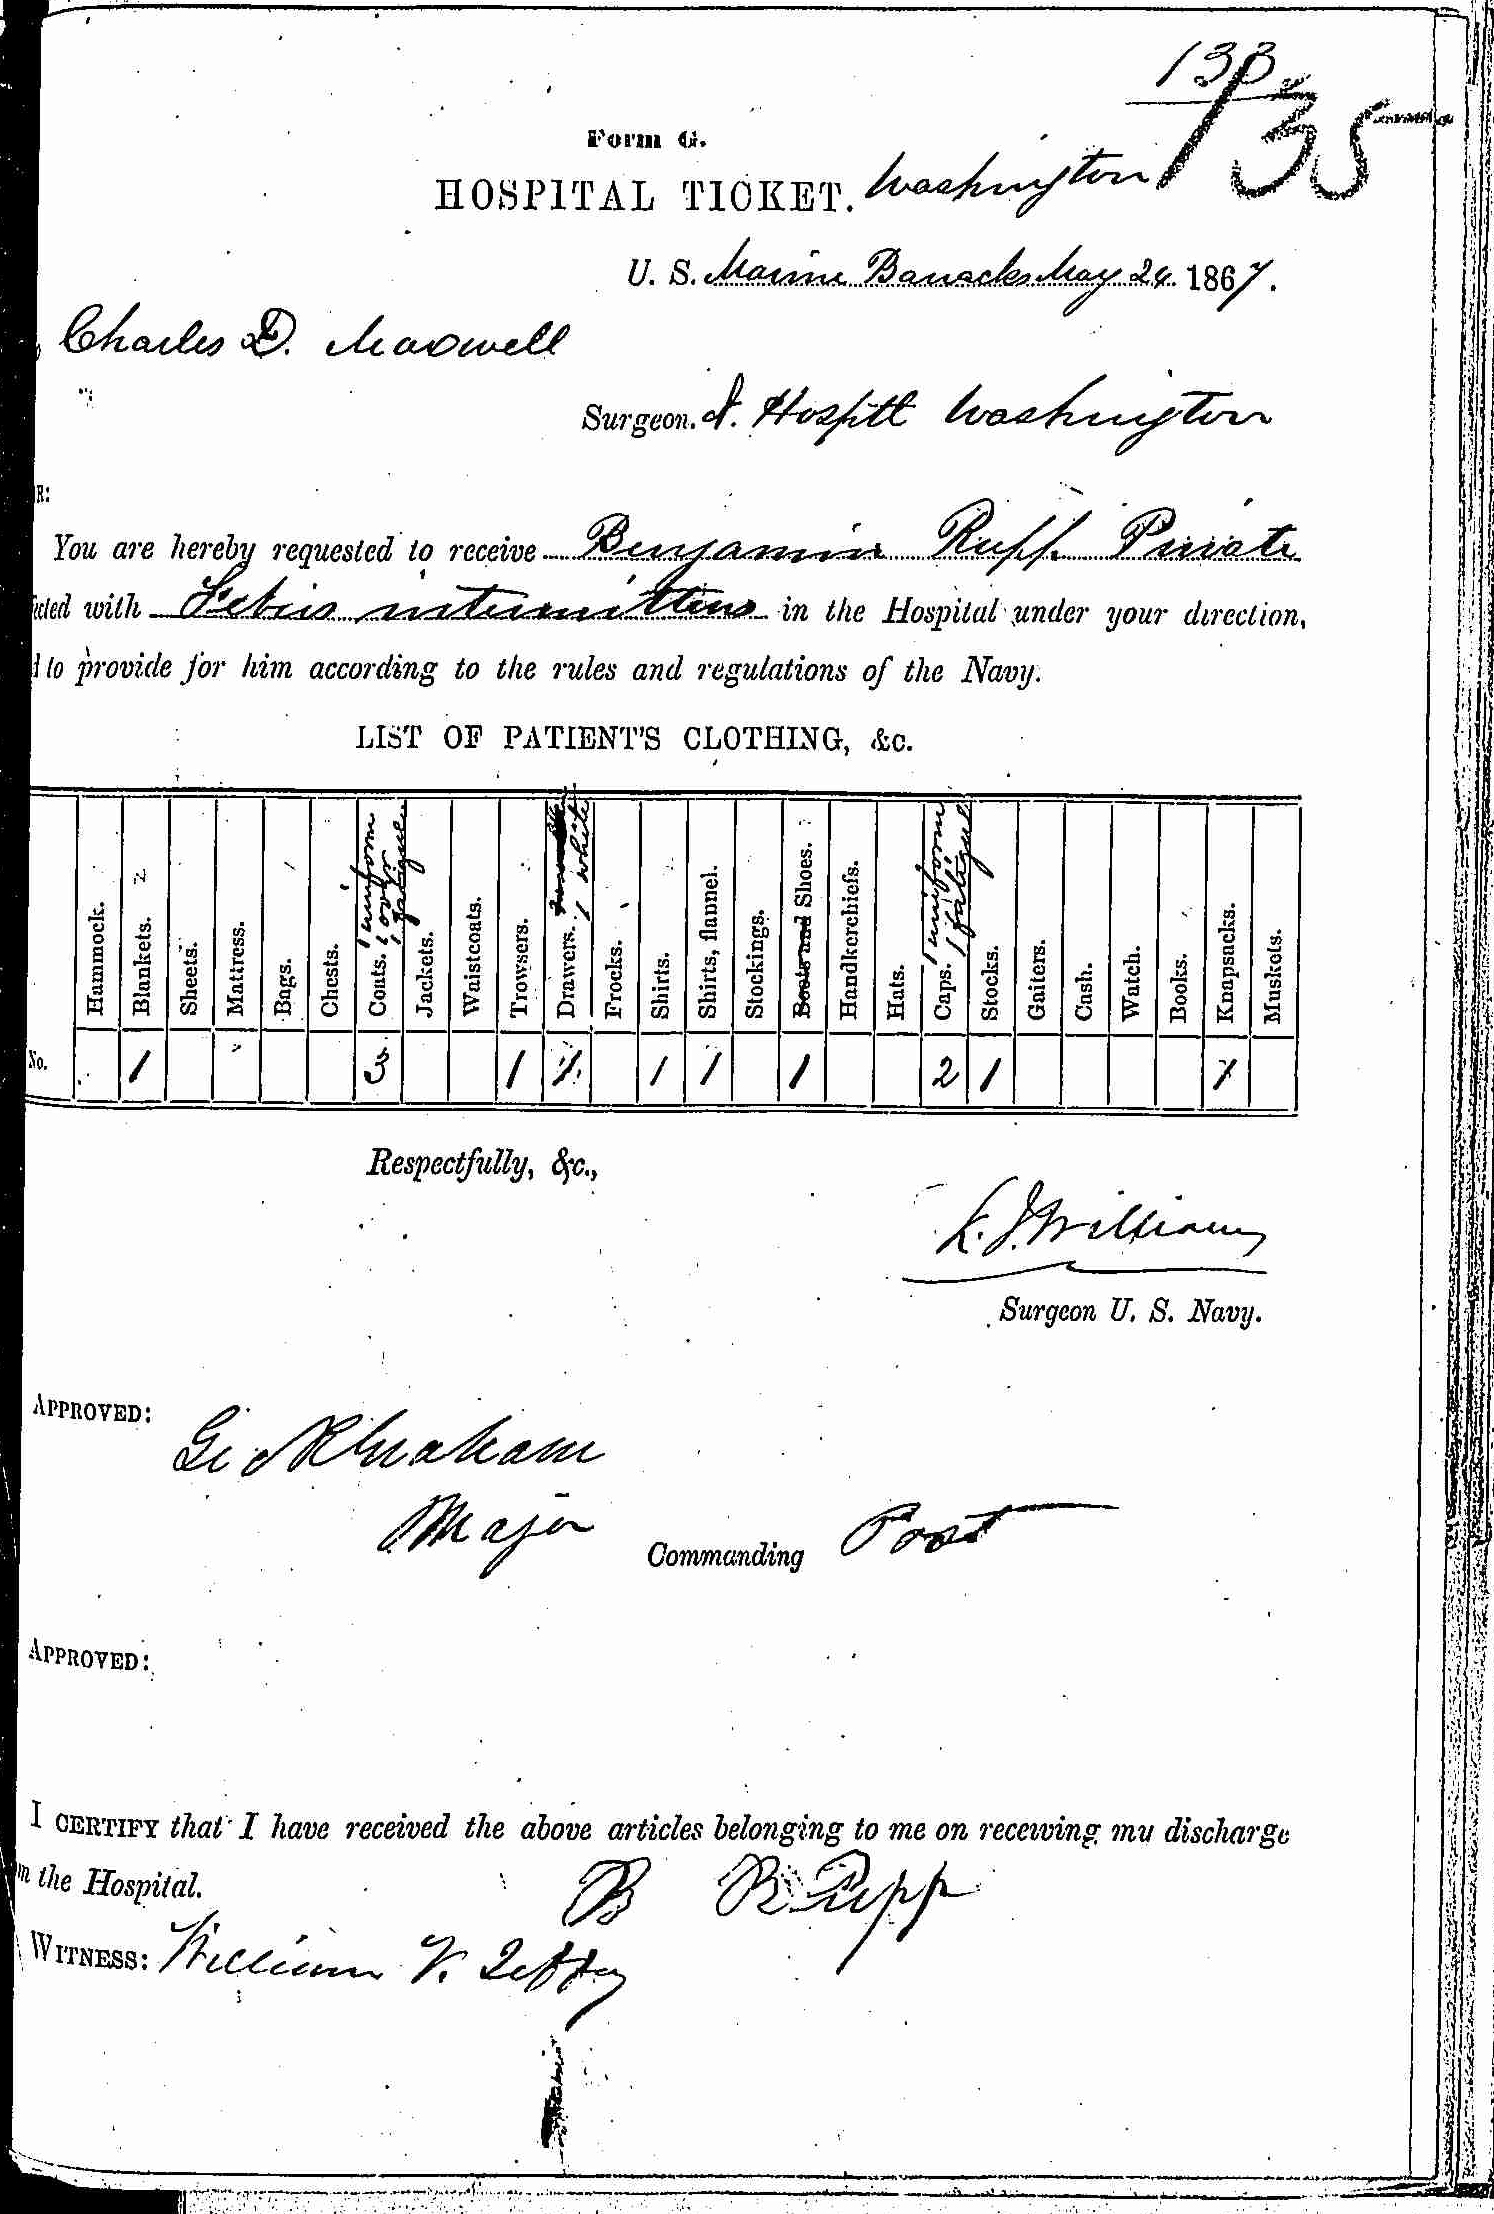 133
135
Form G.
HOSPITAL TICKET. Washington
U. S. Marine Barracks May 24 1867.
Charles D. Maxwell
Surgeon. N. Hospitl Washington
R:
You are hereby requested to receive Benjamin Rupp Private
icted with Febris intermittens in the Hospital under your direction,
d to provide for him according to the rules and regulations of the Navy.
LIST OF PATIENT'S CLOTHING, &c.
Hammock. Blankets. Sheets. Mattress. Bags. Chests. Coats. 1 uniform 1 over 1 fatigue Jackets. Waistcoats. Trowsers. Drawers. 1 white Frocks. Shirts. Shirts, flannel. Stockings. Boots and Shoes. Handkerchiefs. Hats. Caps. 1 uniform 1 fatigue Stocks. Gaiters. Cash. Watch. Books. Knapsacks. Muskets.
No. 1 3 1 1 1 1 1 2 1 1
Respectfully, &c.,
Williams
Surgeon U. S. Navy.
APPROVED:
Geo R Graham
Major Commanding Post
APPROVED:
I CERTIFY that I have received the above articles belonging to me on receiving my discharge
m the Hospital.
B Rupp
WITNESS: William V.